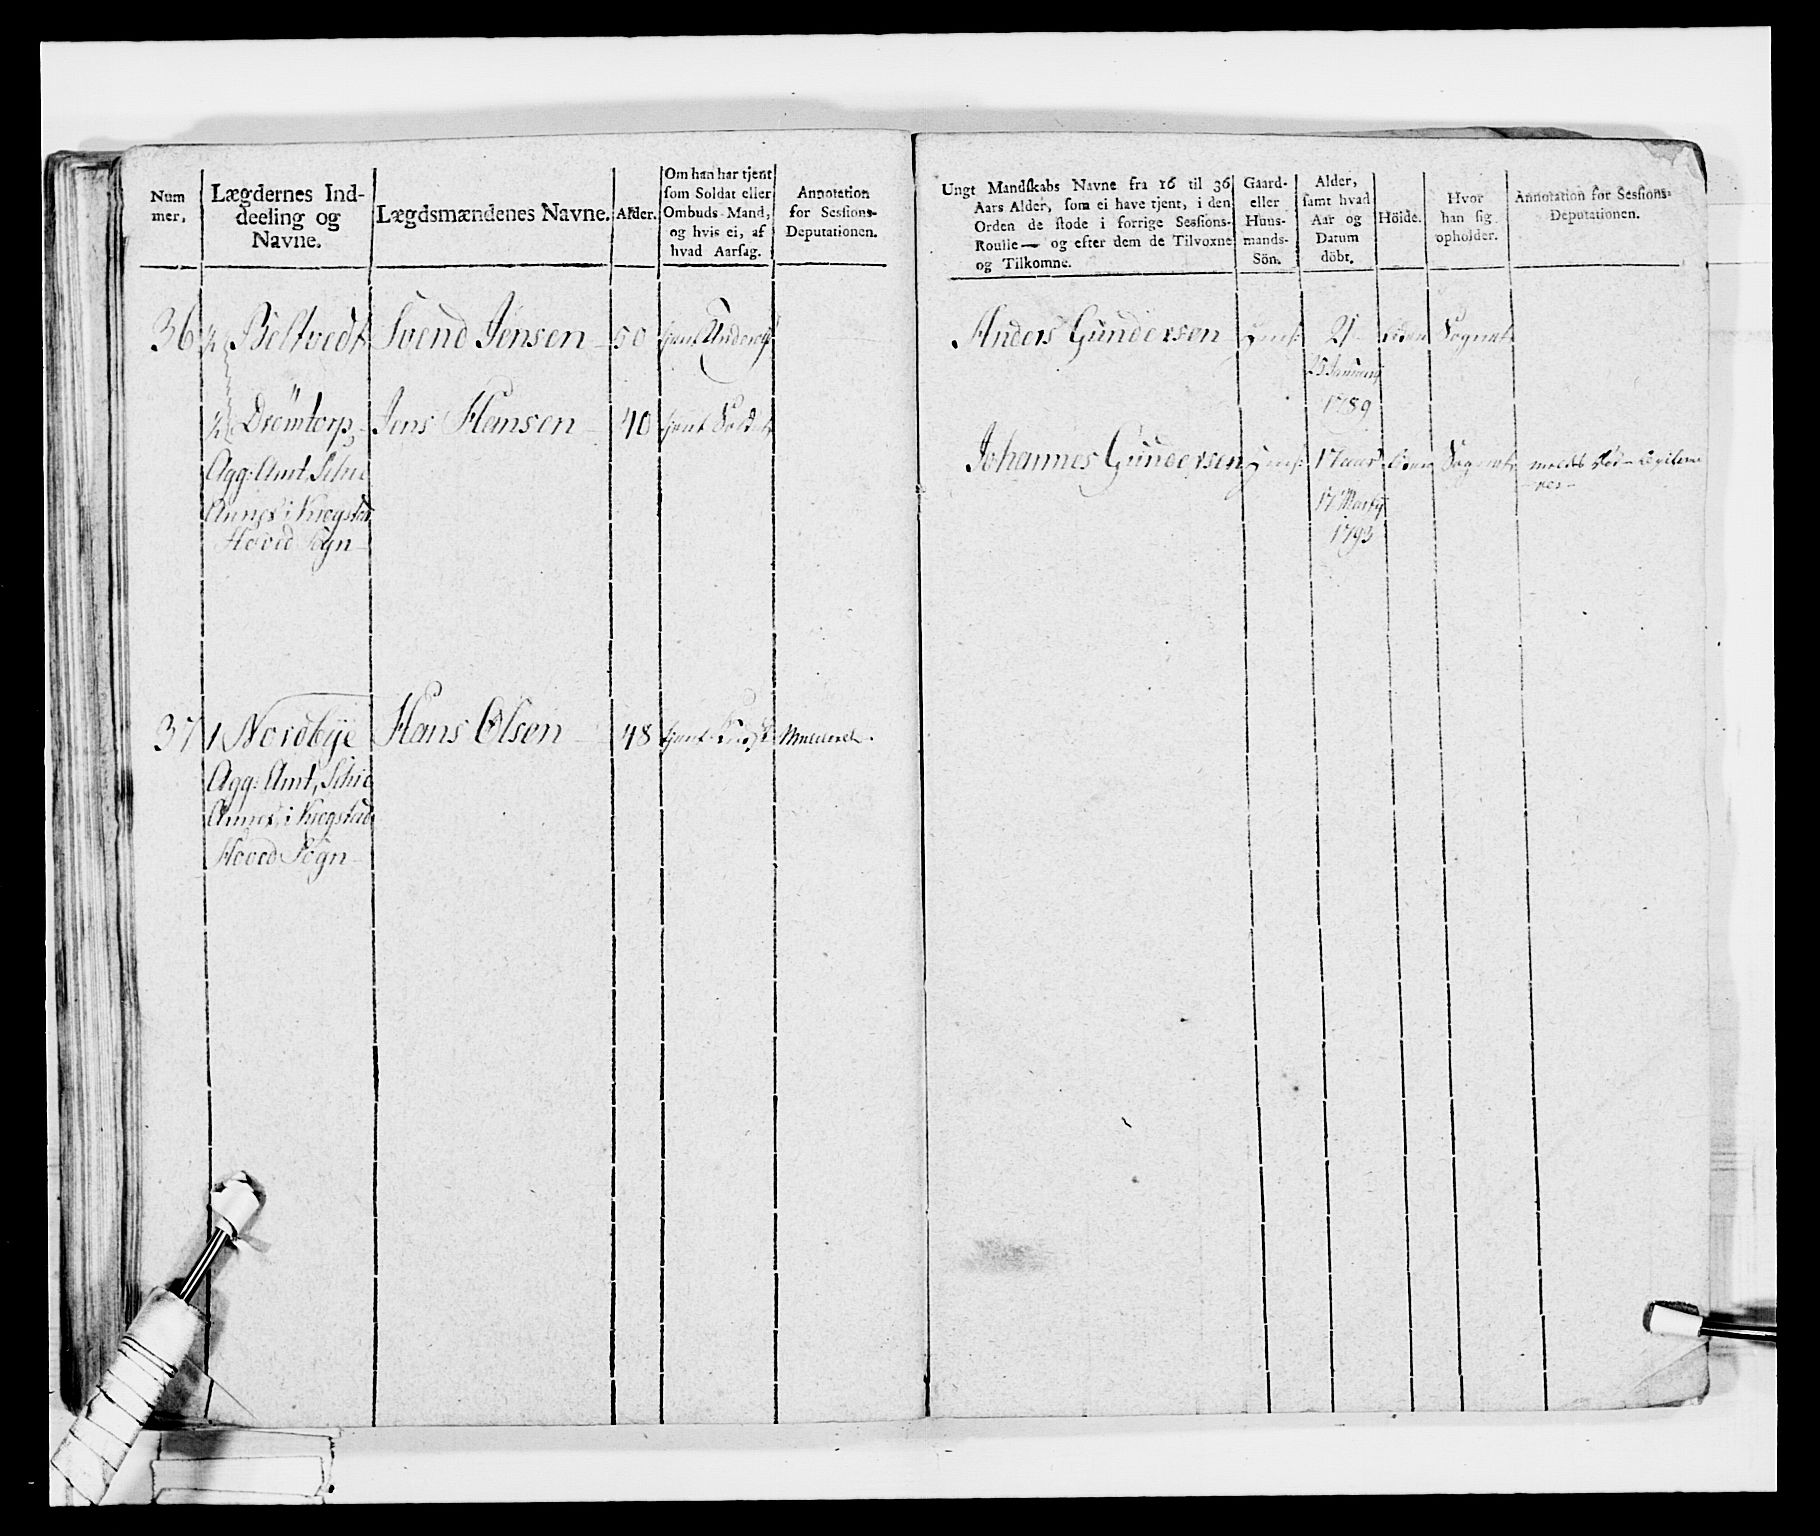 Num
mer,
Lægdernes Ind-
deeling og
Navne.
Lægdsmændenes Navne.
Alder.
Om han har tjent
som Soldat eller
Ombuds-Mand,
og hvis ei, af
hvad Aarsag.
Annotation
for Sessions-
Deputationen.
36 ½ Beltvedt Svend Jensen 50 tjent
½ Drömtorp Jens Hansen 40 tjent Soldat
Agg: Amt, Schie
Annex i Krogstad
Hoved Sogn
37 1 Nordbye Hans Olsen 48 tjent
Agg: Amt, Schie
Annex, i Krogstad
Hoved Sogn
Ungt Mandskabs Navne fra 16 til 36
Aars Alder, som ei have tjent, i den
Orden de stode i forrige Sessions-
Roulle — og efter dem de Tilvoxne
og Tilkomne.
Gaard-
eller
Huus-
mands-
Sön.
Alder,
samt hvad
Aar og
Datum
döbt.
Höide.
Hvor
han sig
opholder.
Annotation for Sessions-
Deputationen.
Anders Gundersen 21 Sognet
23 January
1789
Johannes Gundersen 17 aar Sognet
17 Marty
1793